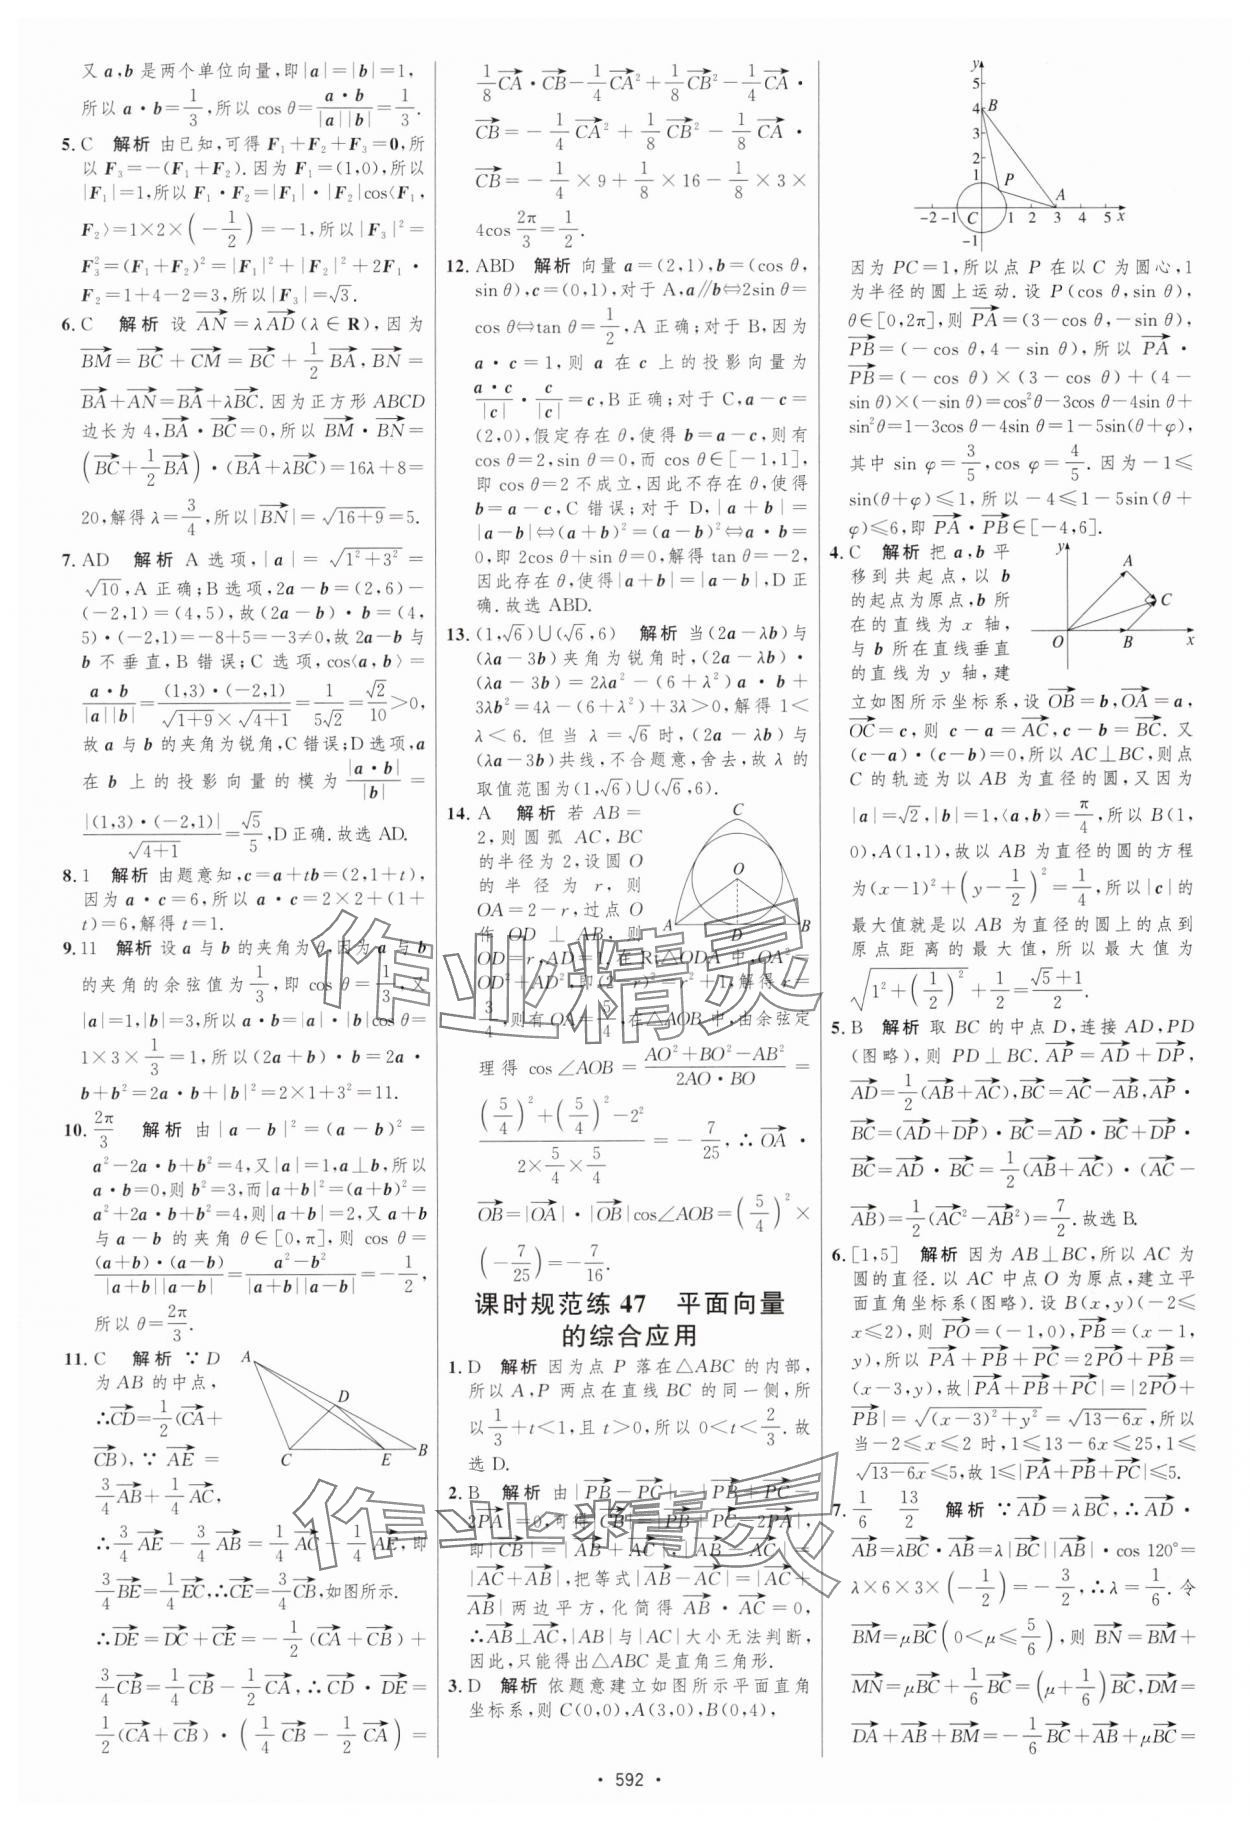 又 a,b 是两个单位向量,即|a|=|b|=1,
所以 a·b=1/3,所以 cos θ=a·b/(|a||b|)=1/3.
5. C 解析 由已知,可得 F₁+F₂+F₃=0,所
以 F₃=-(F₁+F₂). 因为 F₁=(1,0),所以
|F₁|=1,所以 F₁·F₂=|F₁|·|F₂|cos⟨F₁,
F₂⟩=1×2×(-1/2)=-1,所以|F₃|²=
F₃²=(F₁+F₂)²=|F₁|²+|F₂|²+2F₁·
F₂=1+4-2=3,所以|F₃|=√3.
6. C 解析 设 AN→=λAD→(λ∈R),因为
BM→=BC→+CM→=BC→+1/2 BA→,BN→=
BA→+AN→=BA→+λBC→. 因为正方形 ABCD
边长为 4,BA→·BC→=0,所以 BM→·BN→=
(BC→+1/2 BA→)·(BA→+λBC→)=16λ+8=
20,解得 λ=3/4,所以|BN→|=√(16+9)=5.
7. AD 解析 A 选项,|a|=√(1²+3²)=
√10,A 正确;B 选项,2a-b=(2,6)-
(-2,1)=(4,5),故(2a-b)·b=(4,
5)·(-2,1)=-8+5=-3≠0,故 2a-b 与
b 不垂直,B 错误;C 选项,cos⟨a,b⟩=
a·b/(|a||b|)=(1,3)·(-2,1)/(√(1+9)×√(4+1))=1/(5√2)=√2/10>0,
故 a 与 b 的夹角为锐角,C 错误;D 选项,a
在 b 上的投影向量的模为 |a·b|/|b|
|(1,3)·(-2,1)|/√(4+1)=√5/5,D 正确. 故选 AD.
8. 1 解析 由题意知,c=a+tb=(2,1+t),
因为 a·c=6,所以 a·c=2×2+(1+
t)=6,解得 t=1.
9. 11 解析 设 a 与 b 的夹角为 θ,因为 a 与 b
的夹角的余弦值为 1/3,即 cos θ=1/3,又
|a|=1,|b|=3,所以 a·b=|a|·|b|cos θ=
1×3×1/3=1,所以(2a+b)·b=2a·
b+b²=2a·b+|b|²=2×1+3²=11.
10. 2π/3 解析 由|a-b|²=(a-b)²=
a²-2a·b+b²=4,又|a|=1,a⊥b,所以
a·b=0,则 b²=3,而|a+b|²=(a+b)²=
a²+2a·b+b²=4,则|a+b|=2,又 a+b
与 a-b 的夹角 θ∈[0,π],则 cos θ=
(a+b)·(a-b)/(|a+b||a-b|)=(a²-b²)/(|a+b||a-b|)=-1/2,
所以 θ=2π/3.
11. C 解析 ∵D
为 AB 的中点,
∴CD→=1/2(CA→+
CB→),∵AE→=
3/4 AB→+1/4 AC→,
A D C E B
∴3/4 AE→-3/4 AB→=1/4 AC→-1/4 AE→,即
3/4 BE→=1/4 EC→,∴CE→=3/4 CB→,如图所示.
∴DE→=DC→+CE→=-1/2(CA→+CB→)+
3/4 CB→=1/4 CB→-1/2 CA→,∴CD→·DE→=
1/2(CA→+CB→)·(1/4 CB→-1/2 CA→)=
1/8 CA→·CB→-1/4 CA→²+1/8 CB→²-1/4 CA→·
CB→=-1/4 CA→²+1/8 CB→²-1/8 CA→·
CB→=-1/4×9+1/8×16-1/8×3×
4cos 2π/3=1/2.
12. ABD 解析 向量 a=(2,1),b=(cos θ,
sin θ),c=(0,1),对于 A,a∥b⇔2sin θ=
cos θ⇔tan θ=1/2,A 正确;对于 B,因为
a·c=1,则 a 在 c 上的投影向量为
a·c/|c|·c/|c|=c,B 正确;对于 C,a-c=
(2,0),假定存在 θ,使得 b=a-c,则有
cos θ=2,sin θ=0,而 cos θ∈[-1,1],
即 cos θ=2 不成立,因此不存在 θ,使得
b=a-c,C 错误;对于 D,|a+b|=
|a-b|⇔(a+b)²=(a-b)²⇔a·b=
0,即 2cos θ+sin θ=0,解得 tan θ=-2,
因此存在 θ,使得|a+b|=|a-b|,D 正
确. 故选 ABD.
13. (1,√6)∪(√6,6) 解析 当(2a-λb)与
(λa-3b)夹角为锐角时,(2a-λb)·
(λa-3b)=2λa²-(6+λ²)a·b+
3λb²=4λ-(6+λ²)+3λ>0,解得 1<
λ<6. 但当 λ=√6 时,(2a-λb)与
(λa-3b)共线,不合题意,舍去,故 λ 的
取值范围为(1,√6)∪(√6,6).
14. A 解析 若 AB=
2,则圆弧 AC,BC
的半径为 2,设圆 O
的半径为 r,则
OA=2-r,过点 O
作 OD⊥AB,则
C O A D B
OD=r,AD=1,在 Rt△ODA 中,OA²=
OD²+AD²,即(2-r)²=r²+1,解得 r=
3/4,则有 OA=5/4,在△AOB 中,由余弦定
理得 cos∠AOB=(AO²+BO²-AB²)/(2AO·BO)=
((5/4)²+(5/4)²-2²)/(2×5/4×5/4)=-7/25,∴OA→·
OB→=|OA→|·|OB→|cos∠AOB=(5/4)²×
(-7/25)=-7/16.
课时规范练 47 平面向量
的综合应用
1. D 解析 因为点 P 落在△ABC 的内部,
所以 A,P 两点在直线 BC 的同一侧,所
以 1/3+t<1,且 t>0,所以 0<t<2/3. 故
选 D.
2. B 解析 由|PB→-PC→|=|PB→+PC→-
2PA→|,可得|CB→|=|PB→+PC→-2PA→|,
即|CB→|=|AB→+AC→|,|AB→-AC→|=
|AC→+AB→|,把等式|AB→-AC→|=|AC→+
AB→|两边平方,化简得 AB→·AC→=0,
∴AB→⊥AC→,|AB|与|AC|大小无法判断,
因此,只能得出△ABC 是直角三角形.
3. D 解析 依题意建立如图所示平面直角
坐标系,则 C(0,0),A(3,0),B(0,4),
y 5 4 3 2 1 B P A C -2 -1 1 2 3 4 5 x -1
因为 PC=1,所以点 P 在以 C 为圆心,1
为半径的圆上运动. 设 P(cos θ,sin θ),
θ∈[0,2π],则 PA→=(3-cos θ,-sin θ),
PB→=(-cos θ,4-sin θ),所以 PA→·
PB→=(-cos θ)×(3-cos θ)+(4-
sin θ)×(-sin θ)=cos²θ-3cos θ-4sin θ+
sin²θ=1-3cos θ-4sin θ=1-5sin(θ+φ),
其中 sin φ=3/5,cos φ=4/5. 因为-1≤
sin(θ+φ)≤1,所以-4≤1-5sin(θ+
φ)≤6,即 PA→·PB→∈[-4,6].
4. C 解析 把 a,b 平
移到共起点,以 b
的起点为原点,b 所
在的直线为 x 轴,
与 b 所在直线垂直
的直线为 y 轴,建
y A C O B x
立如图所示坐标系,设 OB→=b,OA→=a,
OC→=c,则 c-a=AC→,c-b=BC→. 又
(c-a)·(c-b)=0,所以 AC⊥BC,则点
C 的轨迹为以 AB 为直径的圆,又因为
|a|=√2,|b|=1,⟨a,b⟩=π/4,所以 B(1,
0),A(1,1),故以 AB 为直径的圆的方程
为(x-1)²+(y-1/2)²=1/4,所以|c|的
最大值就是以 AB 为直径的圆上的点到
原点距离的最大值,所以最大值为
√(1²+(1/2)²)+1/2=(√5+1)/2.
5. B 解析 取 BC 的中点 D,连接 AD,PD
(图略),则 PD⊥BC. AP→=AD→+DP→,
AD→=1/2(AB→+AC→),BC→=AC→-AB→,AP→·
BC→=(AD→+DP→)·BC→=AD→·BC→+DP→·
BC→=AD→·BC→=1/2(AB→+AC→)·(AC→-
AB→)=1/2(AC→²-AB→²)=7/2. 故选 B.
6. [1,5] 解析 因为 AB⊥BC,所以 AC 为
圆的直径. 以 AC 中点 O 为原点,建立平
面直角坐标系(图略). 设 B(x,y)(-2≤
x≤2),则 PO→=(-1,0),PB→=(x-1,
y),所以 PA→+PB→+PC→=2PO→+PB→=
(x-3,y),故|PA→+PB→+PC→|=|2PO→+
PB→|=√((x-3)²+y²)=√(13-6x),所以
当-2≤x≤2 时,1≤13-6x≤25,1≤
√(13-6x)≤5,故 1≤|PA→+PB→+PC→|≤5.
7. 1/6 13/2 解析 ∵AD→=λBC→,∴AD→·
AB→=λBC→·AB→=λ|BC→||AB→|·cos 120°=
λ×6×3×(-1/2)=-3/2,∴λ=1/6. 令
BM→=μBC→(0<μ≤5/6),则 BN→=BM→+
MN→=μBC→+1/6 BC→=(μ+1/6)BC→,DM→=
DA→+AB→+BM→=-1/6 BC→+AB→+μBC→=
·592·
作业精灵
作业精灵